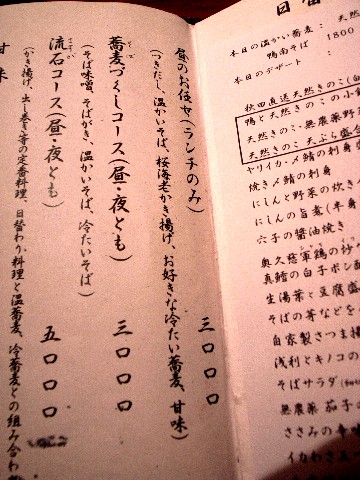 日替
本日の温かい蕎麦： 天然
鴨南そば 1800
本日のデザート：
秋田直送天然きのこ
鴨と天然きのこの小鍋
天然きのこ・無農薬野
天然きのこ天ぷら盛
ヤリイカ・〆鯖の刺身
焼き〆鯖の刺身
にしんと野菜の炊き
にしんの旨煮(半身
穴子の醤油焼き
奥久慈軍鶏の
真鱈の白子ポン酢
生湯葉と豆腐
そばの芽などを
自家製さつま揚
浅利とキノコの
そばサラダ
無農薬 茄子
ささみの辛味
イカわさ
昼のお任せ(ランチのみ) 三〇〇〇
(つきだし、温かいそば、桜海老かき揚げ、お好きな冷たい蕎麦、甘味)
蕎麦づくしコース(昼・夜とも) 三〇〇〇
(そば味噌、そばがき、温かいそば、冷たいそば)
流石コース(昼・夜とも) 五〇〇〇
(かき揚げ、出し巻き等の定番料理、日替わり料理と温蕎麦、冷蕎麦との組み合わ
甘味